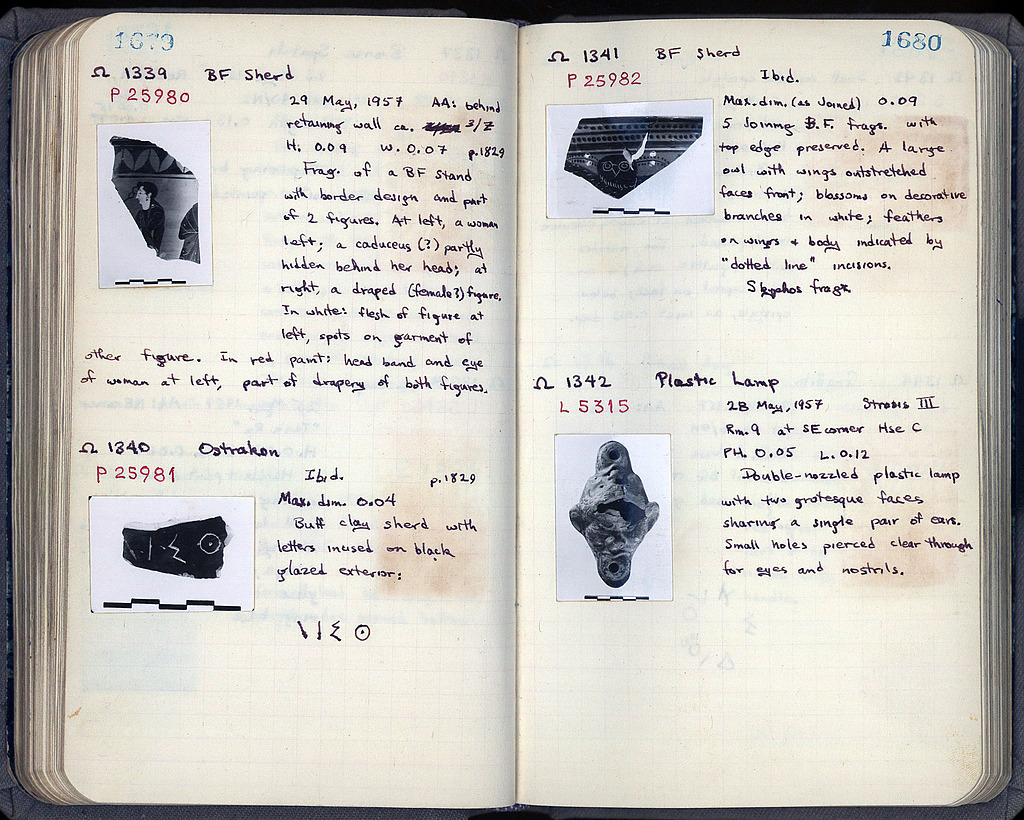 1679
Ω 1339 BF Sherd
P 25980
29 May, 1957 AA: behind
retaining wall ca. 3/Z
H. 0.09 W. 0.07 p.1829
Frag. of a BF stand
with border design and part
of 2 figures. At left, a woman
left; a caduceus (?) partly
hidden behind her head; at
right, a draped (female?) figure.
In white: flesh of figure at
left, spots on garment of
other figure. In red paint: head band and eye
of woman at left, part of drapery of both figures.
Ω 1340 Ostrakon
P 25981
Ibid. p.1829
Max. dim. 0.04
Buff clay sherd with
letters incised on black
glazed exterior:
1680
Ω 1341 BF Sherd
P 25982
Ibid.
Max. dim. (as joined) 0.09
5 Joining B.F. frags. with
top edge preserved. A large
owl with wings outstretched
faces front; blossoms on decorative
branches in white; feathers
on wings + body indicated by
"dotted line" incisions.
Skyphos frag
Ω 1342 Plastic Lamp
L 5315
28 May, 1957 Strosis III
Rm. 9 at SE corner Hse C
PH. 0.05 L. 0.12
Double-nozzled plastic lamp
with two grotesque faces
sharing a single pair of ears.
Small holes pierced clear through
for eyes and nostrils.